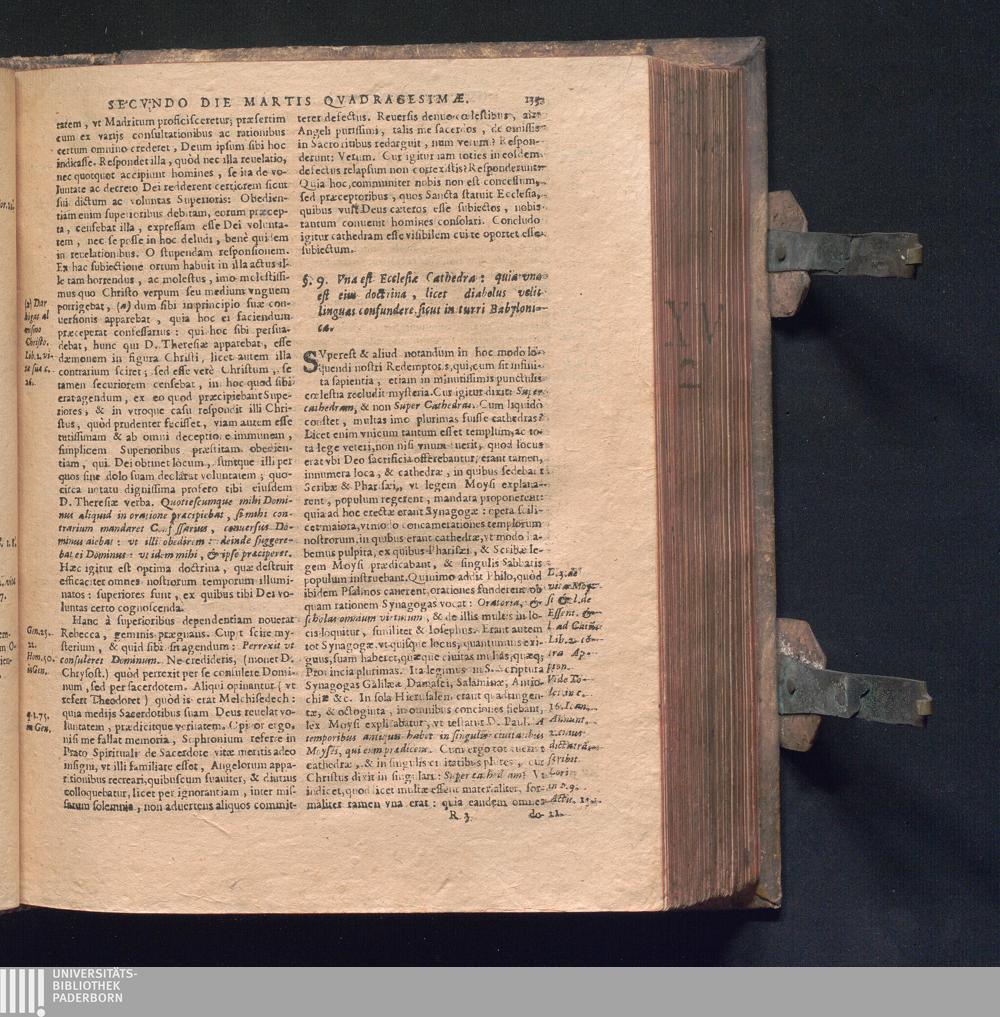 SECVNDO DIE MARTIS QVADRAGESIMÆ.
tatem, vt Madritum proficisceretur; præsertim
cum ex varijs consultationibus ac rationibus
certum omnino crederet, Deum ipsum sibi hoc
indicasse. Respondet illa, quòd nec illa reuelatio,
nec quotquot accipiunt homines, se ita de vo-
luntate ac decreto Dei redderent certiorem sicut
sui dictum ac voluntas Superioris: Obedien-
tiam enim superioribus debitam, eorum præcep-
ta, censebat illa, expressam esse Dei volunta-
tem, nec se posse in hoc deludi, benè quidem
in reuelationibus. O stupendam responsionem.
Ex hac subiectione ortum habuit in illa actus il-
le tam horrendus, ac molestus, imo molestissi-
mus quo Christo verpum seu medium vnguem
porrigebat, (a) dum sibi in principio suæ con-
uersionis apparebat, quia hoc ei faciendum
præceperat confessarius: qui hoc sibi persua-
debat, hunc qui D. Theresiæ apparebat, esse
dæmonem in figura Christi, licet autem illa
contrarium sciret; sed esse verè Christum, se
tamen securiorem censebat, in hoc quod sibi
erat agendum, ex eo quod præcipiebant Supe-
riores; & in vtroque casu respondit illi Chri-
stus, quòd prudenter fecisset, viam autem esse
tutissimam & ab omni deceptione immunem,
simplicem Superioribus præstitam obedien-
tiam, qui Dei obtinet locum, suntque illi per
quos sine dolo suam declarat voluntatem; quo-
circa notatu dignissima profero tibi eiusdem
D. Theresiæ verba. Quotiescumque mihi Domi-
nus aliquid in oratione præcipiebat, si mihi con-
trarium mandaret Confessarius, conuersus Do-
minus aiebat: vt illi obedirem: deinde suggere-
bat ei Dominus: vt idem mihi, & ipse præciperet.
Hæc igitur est optima doctrina, quæ destruit
efficaciter omnes nostrorum temporum illumi-
natos: superiores sunt, ex quibus tibi Dei vo-
luntas certo cognoscenda.
Hanc à superioribus dependentiam nouerat
Rebecca, geminis prægnans. Cupit scire my-
sterium, & quid sibi sit agendum: Perrexit vt
consuleret Dominum. Ne credideris, (monet D.
Chrysost.) quòd perrexit per se consulere Domi-
num, sed per sacerdotem. Aliqui opinantur (vt
refert Theodoret) quòd is erat Melchisedech:
quia medijs Sacerdotibus suam Deus reuelat vo-
luntatem, prædicitque veritatem. Opinor ergo,
nisi me fallat memoria, Sophronium referre in
Prato Spirituali de Sacerdote vitæ meritis adeo
insigni, vt illi familiare esset, Angelorum appa-
ritionibus recreari, quibuscum suauiter, & diutius
colloquebatur, licet per ignorantiam, inter mis-
sarum solemnia, non aduertens aliquos commit-
(a) Dar
higas al
mismo
Christo.
Lib. 2. vi-
tæ suæ c.
26.
Gen. 25.
22.
Hom. 50.
in Gen.
q. 1. 75.
in Gen.
teret defectus. Reuersis denuo cœlestibus, ait
Angeli purissimi, talis me sacerdos, de omissis
in Sacro ritibus redarguit, num verum? Respon-
derunt: Verum. Cur igitur iam toties in eosdem
defectus relapsum non correxistis? Responderunt:
Quia hoc, communiter nobis non est concessum,
sed præceptoribus, quos Sancta statuit Ecclesia,
quibus vult Deus cæteros esse subiectos, nobis
tantum conuenit homines consolari. Concludo
igitur cathedram esse visibilem cui te oportet esse
subiectum.
§. 9. Vna est Ecclesiæ Cathedra: quia vna
est eius doctrina, licet diabolus velit
linguas confundere, sicut in turri Babyloni-
ca.
SVperest & aliud notandum in hoc modo lo-
quendi nostri Redemptoris, qui, cum sit infini-
ta sapientia, etiam in minutissimis punctulis
cœlestia recludit mysteria. Cur igitur dixit: Super
cathedram, & non Super Cathedras. Cum liquidò
constet, multas imo plurimas fuisse cathedras?
Licet enim vnicum tantum esset templum, ac to-
ta lege veteri, non nisi vnum fuerit, quod locus
erat vbi Deo sacrificia offerebantur; erant tamen,
innumera loca, & cathedræ, in quibus sedebant
Scribæ & Pharisæi, vt legem Moysi explana-
rent, populum regerent, mandata proponerent:
quia ad hoc erectæ erant Synagogæ: opera scili-
cet maiora, vt modo concamerationes templorum
nostrorum, in quibus erant cathedræ, vt modo ha-
bemus pulpita, ex quibus Pharisæi, & Scribæ le-
gem Moysi prædicabant, & singulis Sabbatis
populum instruebant. Quinimo addit Philo, quòd
ibidem Psalmos canerent, orationes funderent ob
quam rationem Synagogas vocat: Oratoria, &
scholas omnium virtutum, & de illis multis in lo-
cis loquitur, similiter & Iosephus. Erant autem
tot Synagogæ, vt quisque locus, quantumuis exi-
guus, suam haberet, quæque ciuitas multas, quæq;
Prouincia plurimas. Ita legimus in S. Scriptura
Synagogas Galilææ Damasci, Salaminæ, Antio-
chiæ &c. In sola Hierusalem erant quadringen-
tæ, & octoginta, in omnibus conciones fiebant,
lex Moysi explicabatur, vt testatur D. Paul. A
temporibus antiquis habet in singulis ciuitatibus
Moyses, qui eum prædicent. Cum ergo tot essent
cathedræ, & in singulis ciuitatibus plures, cur
Christus dixit in singulari: Super cathedram? Vt
indicet, quod licet multæ essent materialiter, for-
maliter tamen vna erat: quia eandem omnes
R 3
do-
Vide To-
let. in c.
16. Ioan.